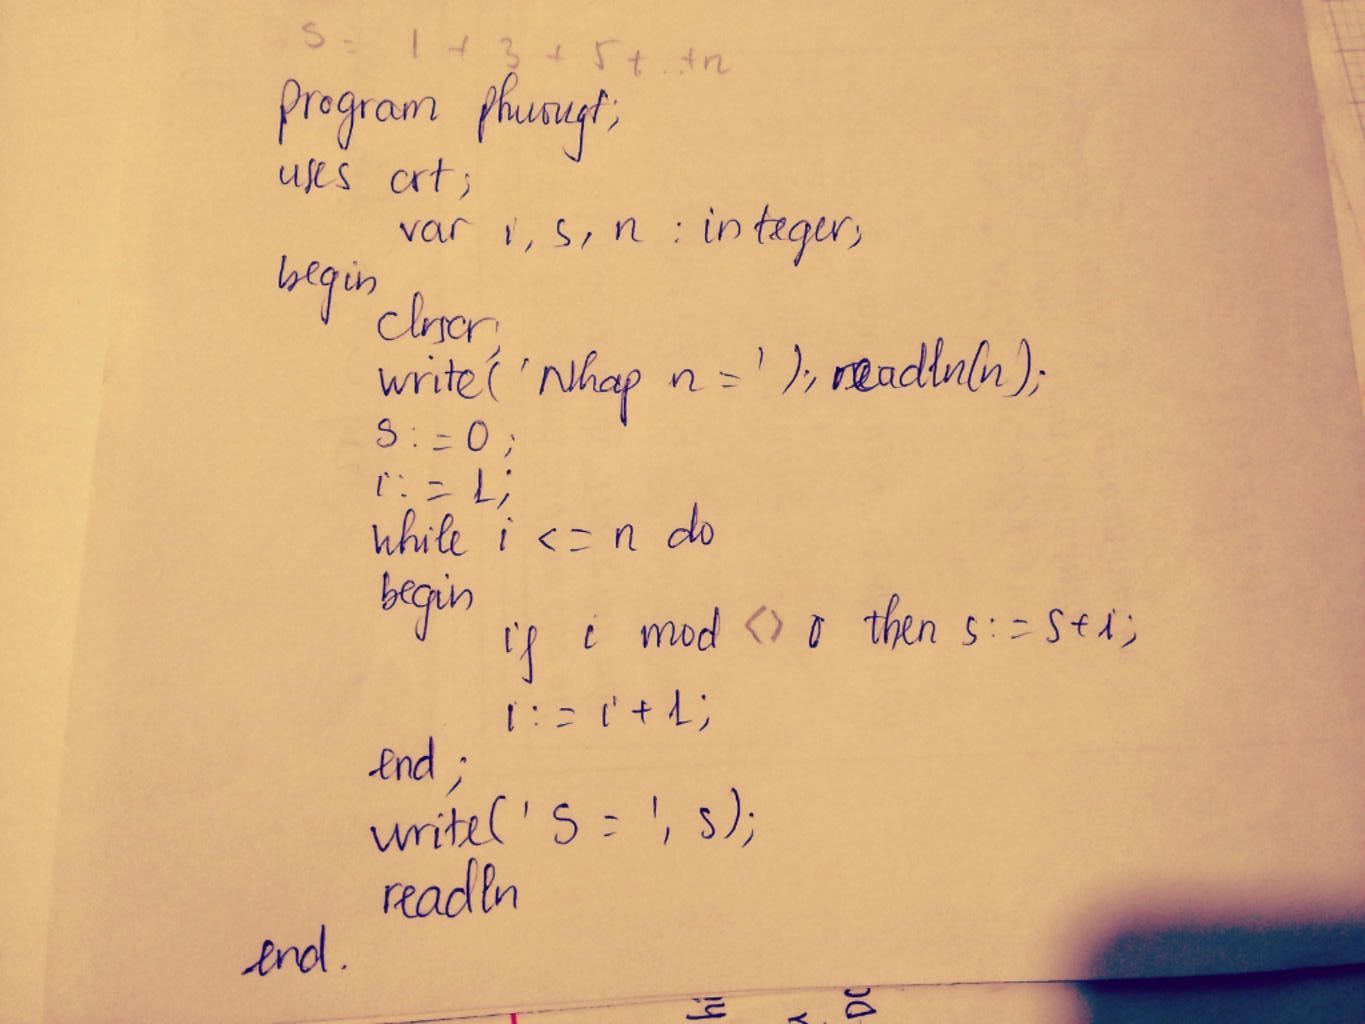 S = 1 + 3 + 5 + ... + n
program phuongt;
uses crt;
var i, s, n : integer;
begin
clrscr;
write('Nhap n = '); readln(n);
s := 0;
i := 1;
while i <= n do
begin
if i mod <> 0 then s := s + i;
i := i + 1;
end;
write('S = ', s);
readln
end.
hi
DC